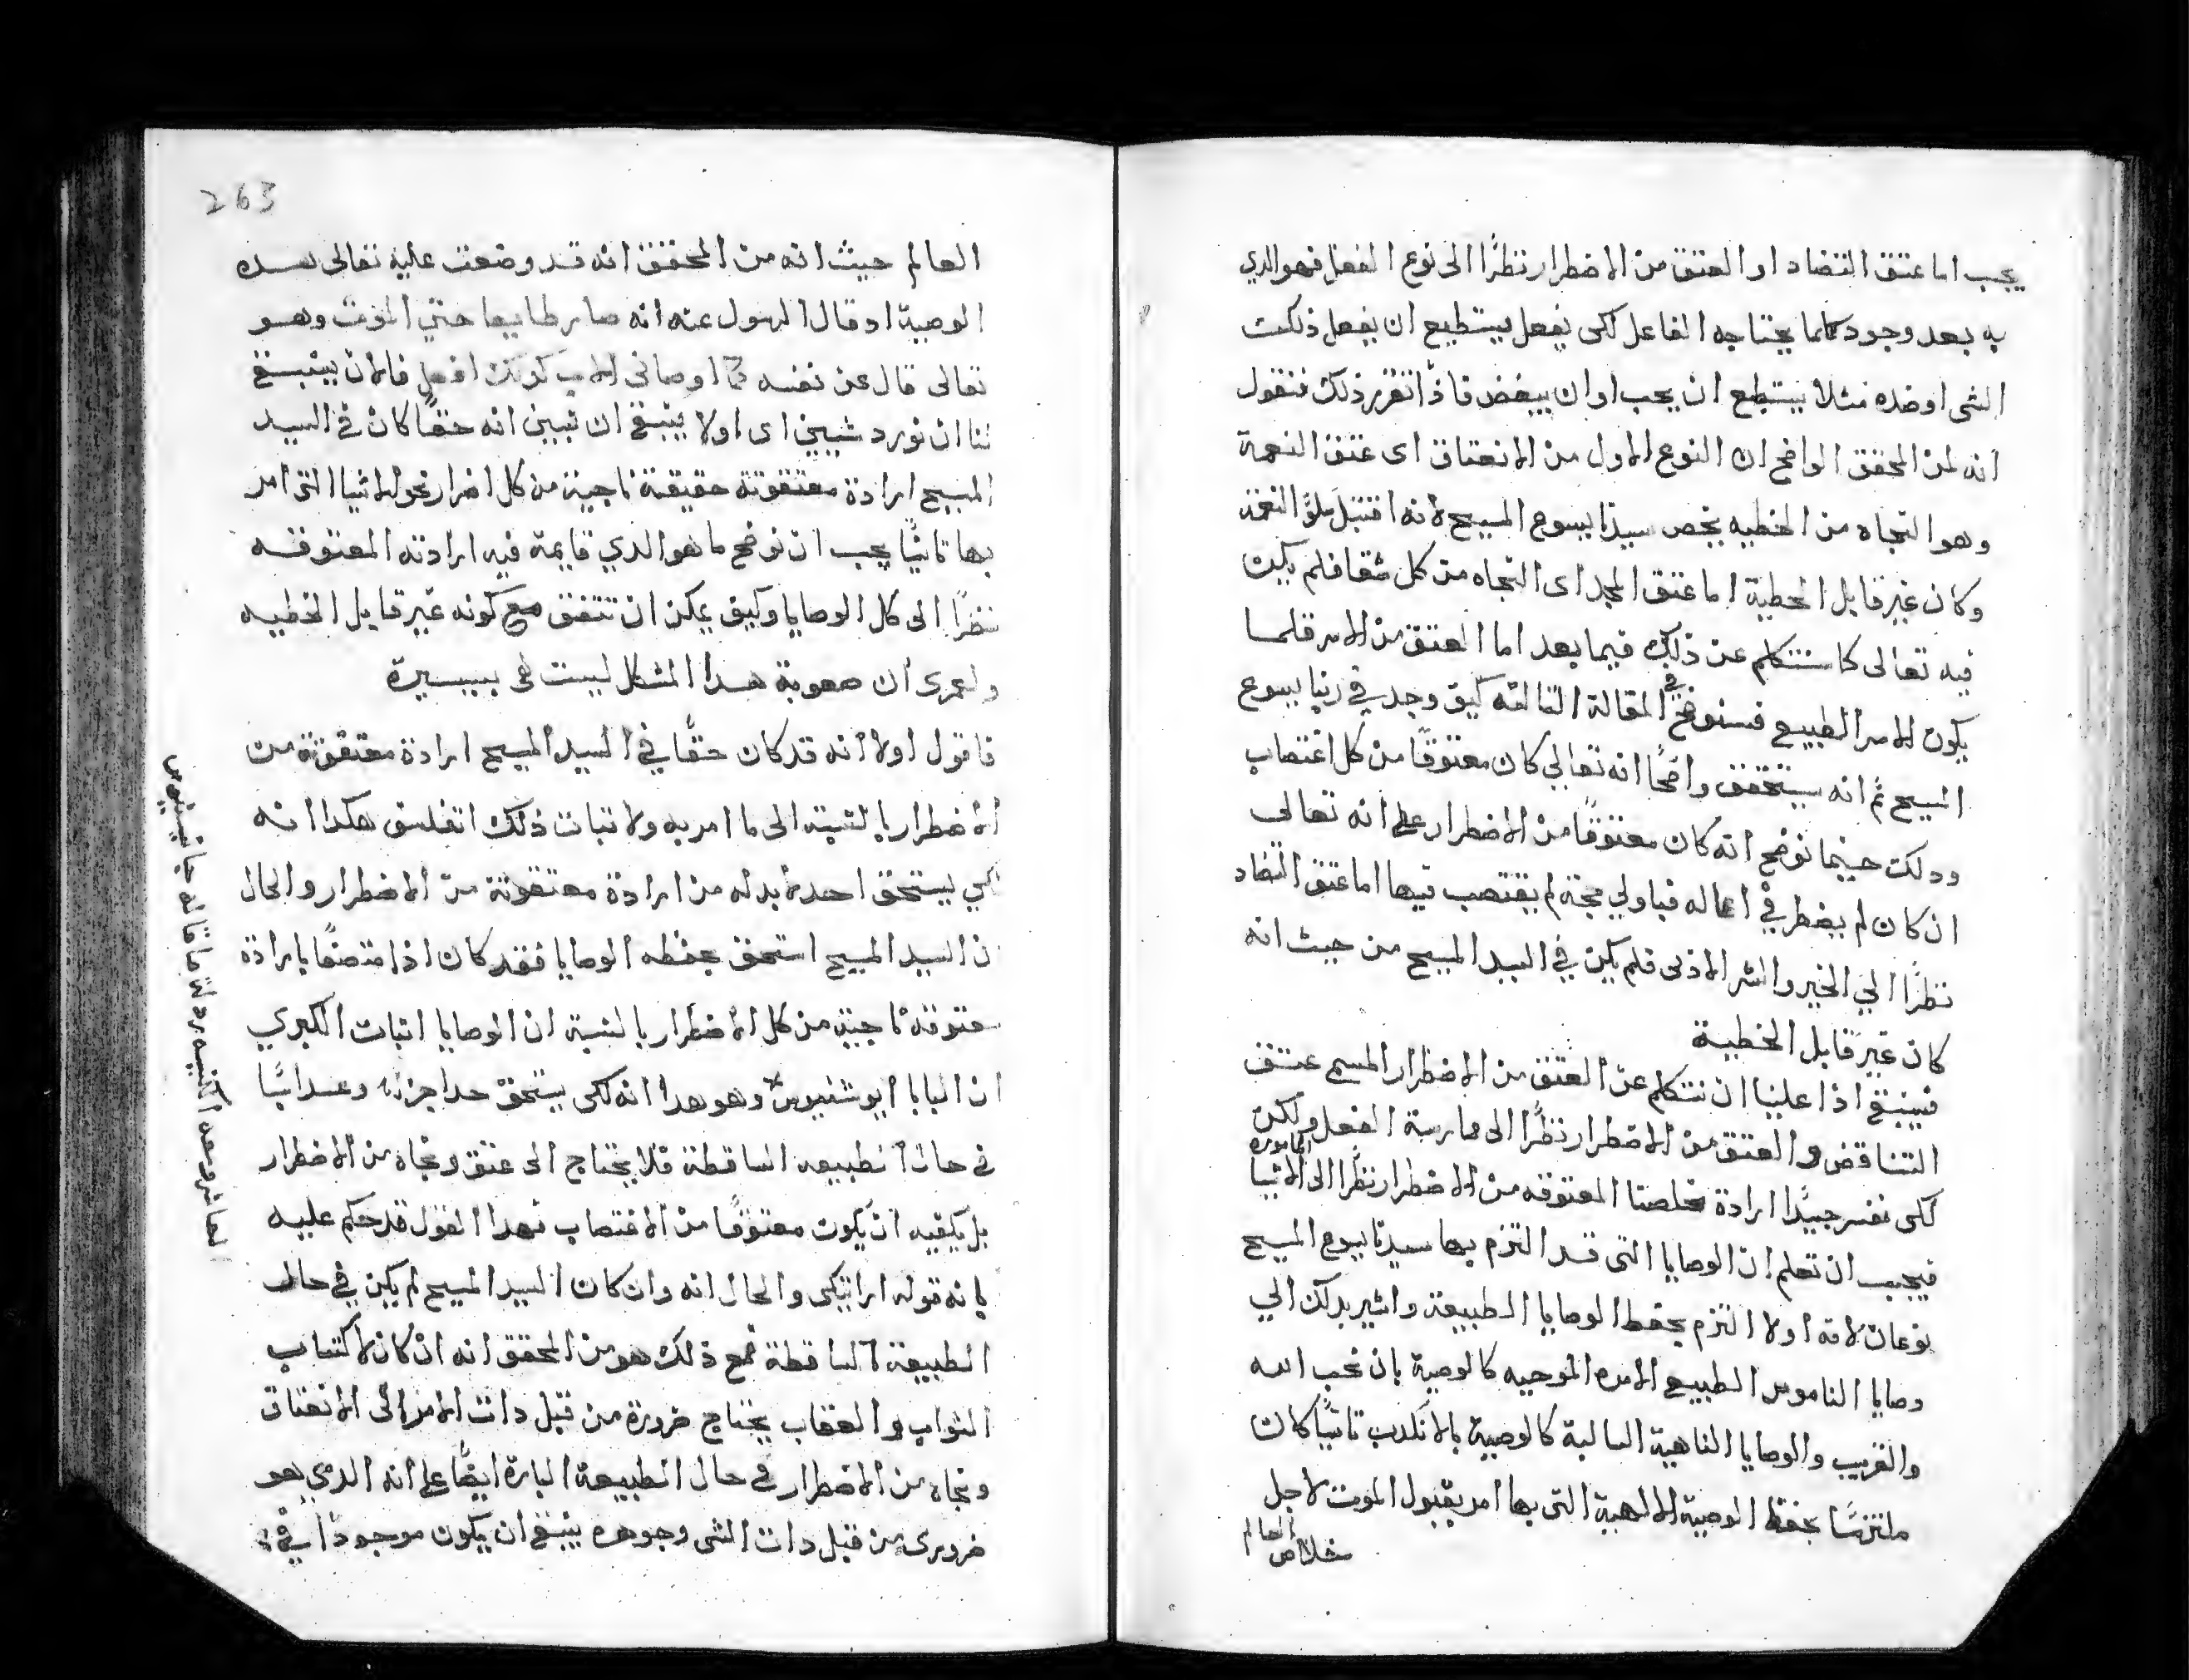 يجب اما عتق التضاد او العتق من الاضطرار نظرًا الى نوع الفعل فهو الذي
به بعد وجود كلما يحتاجه الفاعل لكى يفعل يستطيع ان يفعل ذلكت
الشى او ضده مثلا يستطيع ان يحب او ان يبغض فاذًا تقرر ذلك فنقول
انه لمن المحقق الواضح ان النوع الاول من الانعتاق اى عتق النعمة
وهو النجاه من الخطيه يخص سيدنا يسوع المسيح لانه اقتبل ملوَّ النعمة
وكان غير قابل الخطية اما عتق المجد اى النجاه من كل شقا فلم يكن
فيه تعالى كما سنتكلم عن ذلك فيما بعد اما العتق من الاسر قلما
يكون الاسر الطبيعى فسنوضح في المقالة التالته كيف وجد في ربنا يسوع
المسيح ثم انه سيتحقق واضحًا انه تعالي كان معتوقًا من كل اغتصاب
ودلكت حينما نوضح انه كان معتوقًا من الاضطرار على انه تعالى
ان كان لم يضطر في اعماله فباولي حجة لم يغتصب فيها اما عتق التضاد
نظرًا الي الخير والشر الادبى فلم يكن في السيد المسيح من حيث انه
كان غير قابل الخطية
فينبغى اذا علينا ان نتكلم عن العتق من الاضطرار المسمى عتق
التناقض والعتق من الاضطرار نظرًا الى ممارسة الفعل ولكن
لكى نفسر جيدًا ارادة مخلصنا المعتوقه من الاضطرار نظرًا الى الاشيا المامورة
فيجب ان نعلم ان الوصايا التى قد التزم بها سيدنا يسوع المسيح
نوعان لانه اولا التزم بحفظ الوصايا الطبيعة واشير بدلكن الي
وصايا الناموس الطبيعى الامره الموجبه كالوصية بان نحب الله
والقريب والوصايا الناهية السالبة كالوصية بالا نكدب ثانيًا كان
ملتزمًا بحفظ الوصية الالهية التى بها امر بقبول الموت لاجل
خلاص العالم
263
العالم حيث انه من المحقق انه قد وضعت عليه تعالى هده
الوصية اد قال الرسول عنه انه صار طايعا حتي الموت وهو
تعالى قال عن نفسه كما اوصانى الاب كدلك افعل فالان ينبغى
لنا ان نورد شيين اى اولا ينبغى ان نبين انه حقًا كان في السيد
المسيح ارادة معتقوتة حقيقة ناجية من كل اضرار نحو الاشيا التى امر
بها ثانيًا يجب ان نوضح ما هو الدي قايمة فيه ارادته المعتوقه
نظرًا الى كل الوصايا وكيف يمكن ان تتفق مع كونه غير قابل الخطيه
ولعمرى ان صعوبة هدا المشكل ليست هى بيسيرة
فاقول اولا انه قد كان حقًا في السيد المسيح ارادة معتقوتة من
الاضطرار بالنسبته الى ما امر به ولاتبات ذلك اتفلسف هكدا انه
لكي يستحق احد لابد له من ارادة معتقوتة من الاضطرار والحال
ان السيد المسيح استحق بحفظه الوصايا فقد كان اذا متصفًا بارادة
معتوقه ناجية من كل الاضطرار بالنسبة ان الوصايا اتبات الكبري
ان البابا وهو هدا انه لكى يستحق احد اجزا وعدابًا
فى حال الطبيعه الساقطة فلا يحتاج الى عتق ونجاه من الاضطرار
بل يكفيه ان يكون معتوقًا من الاغتصاب فهدا القول قد حكم عليه
بانه قوله اراتيكى والحال انه وان كان السيد المسيح لم يكن في حال
الطبيعة الساقطة فمع ذلك هو من المحقق انه ان كان لاكتساب
الثواب والعقاب يحتاج ضرورة من قبل دات الامر الى الانعتاق
ونجاه من الاضطرار فى حال الطبيعة البارة ايضًا على انه الدي هو
ضرورى من قبل دات الشى وجوهره ينبغى ان يكون موجودًا في